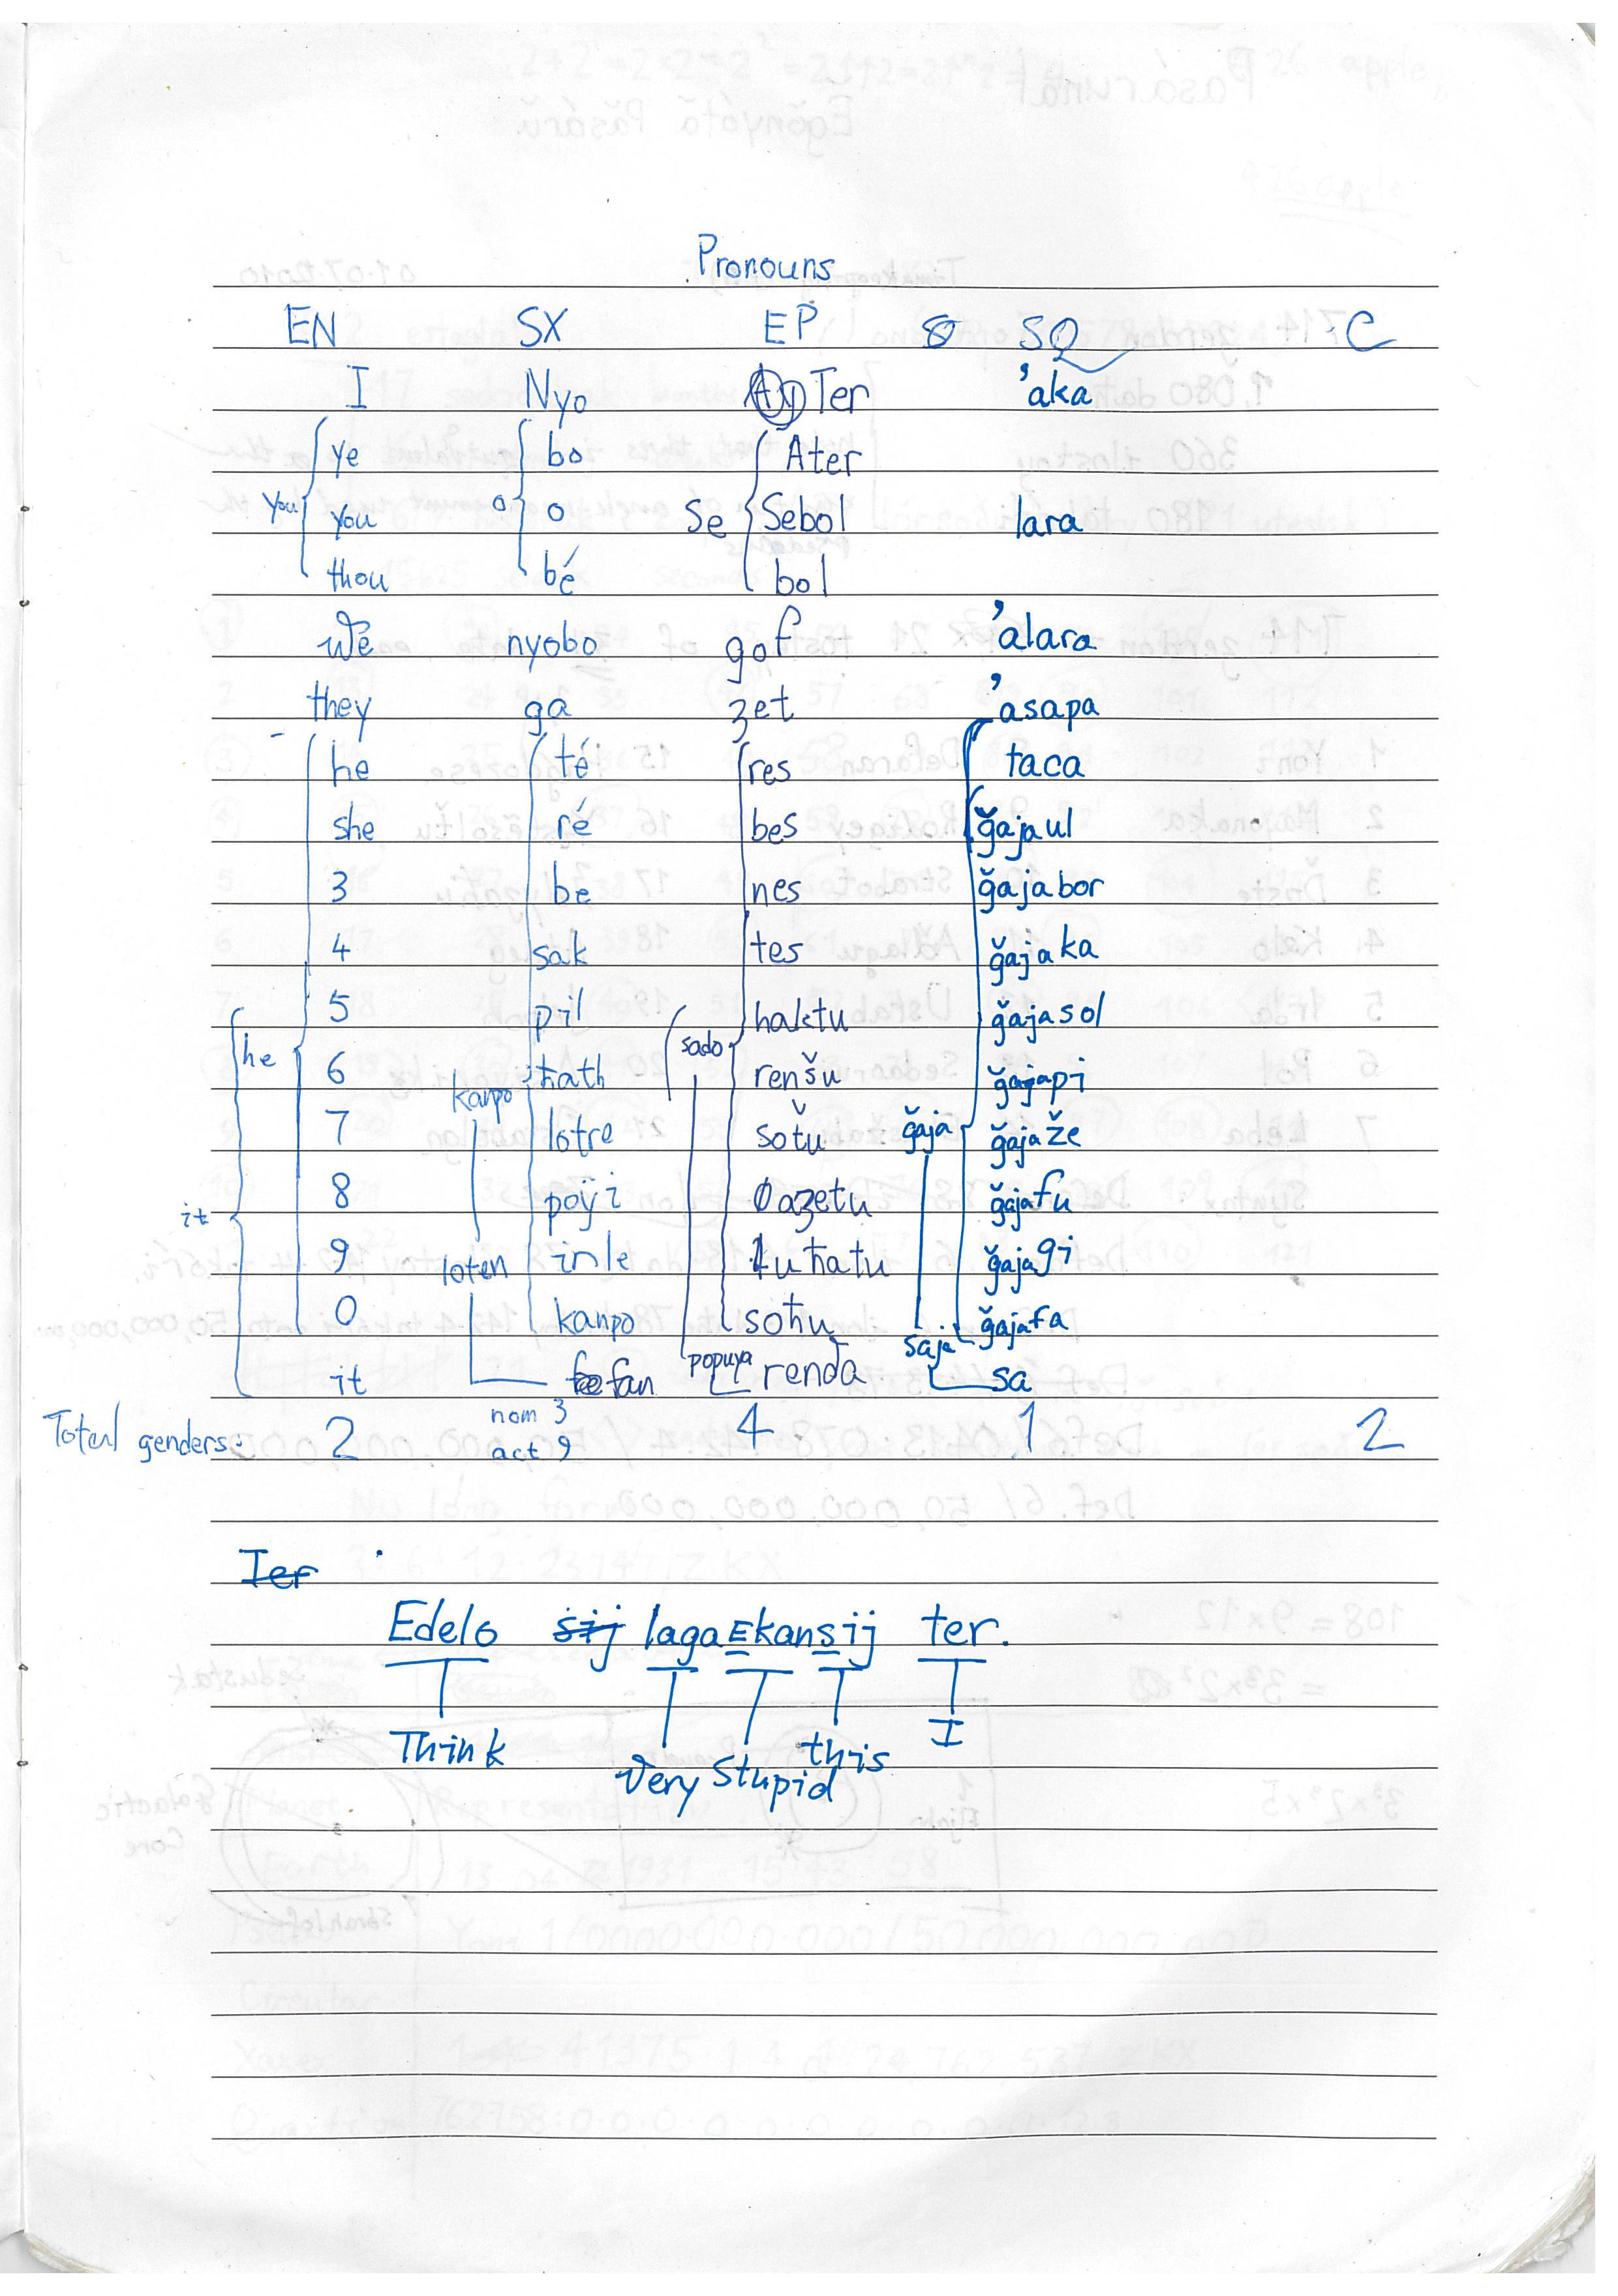 Pronouns
EN SX EP SQ C
I Nyo Ter 'aka
ye bo Ater
you you o o se Sebol lara
thou bé bol
we nyobo gof 'alara
they ga zet 'asapa
he té res taca
she ré bes ğajaul
3 be nes ğajabor
4 sak tes ğajaka
5 pil haktu ğajasol
he sado
6 ħath renšu ğajapi
kanpo
7 lotre sotu ğaja ğajaže
it 8 poÿi ğajafu
9 loten inle ğajagi
0 kanpo soħu ğajafa
saja
it fan popuya renda sa
Total genders: 2 nom 3 4 1 2
act 9
Ter
Edelo sij lagaEkansij ter.
Think Very Stupid this I